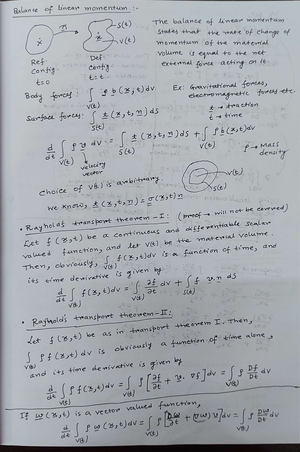 Balance of linear momentum :-
The balance of linear momentum
states that the rate of change of
momentum of the material
volume is equal to the net
external force acting on it.
π
S(t)
V(t)
Ref. Config t=0
Def. Config t=t
Body forces: ∫_{V(t)} ρ b(x,t) dv
Ex: Gravitational forces,
electromagnetic forces etc.
Surface forces: ∫_{S(t)} t(x,t,n) ds
t → traction
t → time
d/dt ∫_{V(t)} ρ v dv = ∫_{S(t)} t(x,t,n) ds + ∫_{V(t)} ρ b dv
velocity vector
ρ → Mass density
Choice of V(t) is arbitrary.
V(t)
S(t)
We know, t(x,t,n) = σ(x,t) n
• Rayhold's transport theorem - I: (Proof → will not be covered)
Let f(x,t) be a continuous and differentiable scalar
valued function, and let V(t) be the material volume.
Then, obviously, ∫_{V(t)} f(x,t) dv is a function of time, and
its time derivative is given by
d/dt ∫_{V(t)} f(x,t) dv = ∫_{V(t)} ∂f/∂t dv + ∫_{S(t)} f v.n ds
• Rayhold's transport theorem - II:
Let f(x,t) be as in transport theorem I. Then,
∫_{V(t)} ρ f(x,t) dv is obviously a function of time alone,
and its time derivative is given by
d/dt ∫_{V(t)} ρ f(x,t) dv = ∫_{V(t)} ρ [∂f/∂t + v. ∇f] dv = ∫_{V(t)} ρ Df/Dt dv
If w(x,t) is a vector valued function,
d/dt ∫_{V(t)} ρ w(x,t) dv = ∫_{V(t)} ρ [∂w/∂t + (∇w) v] dv = ∫_{V(t)} ρ Dw/Dt dv